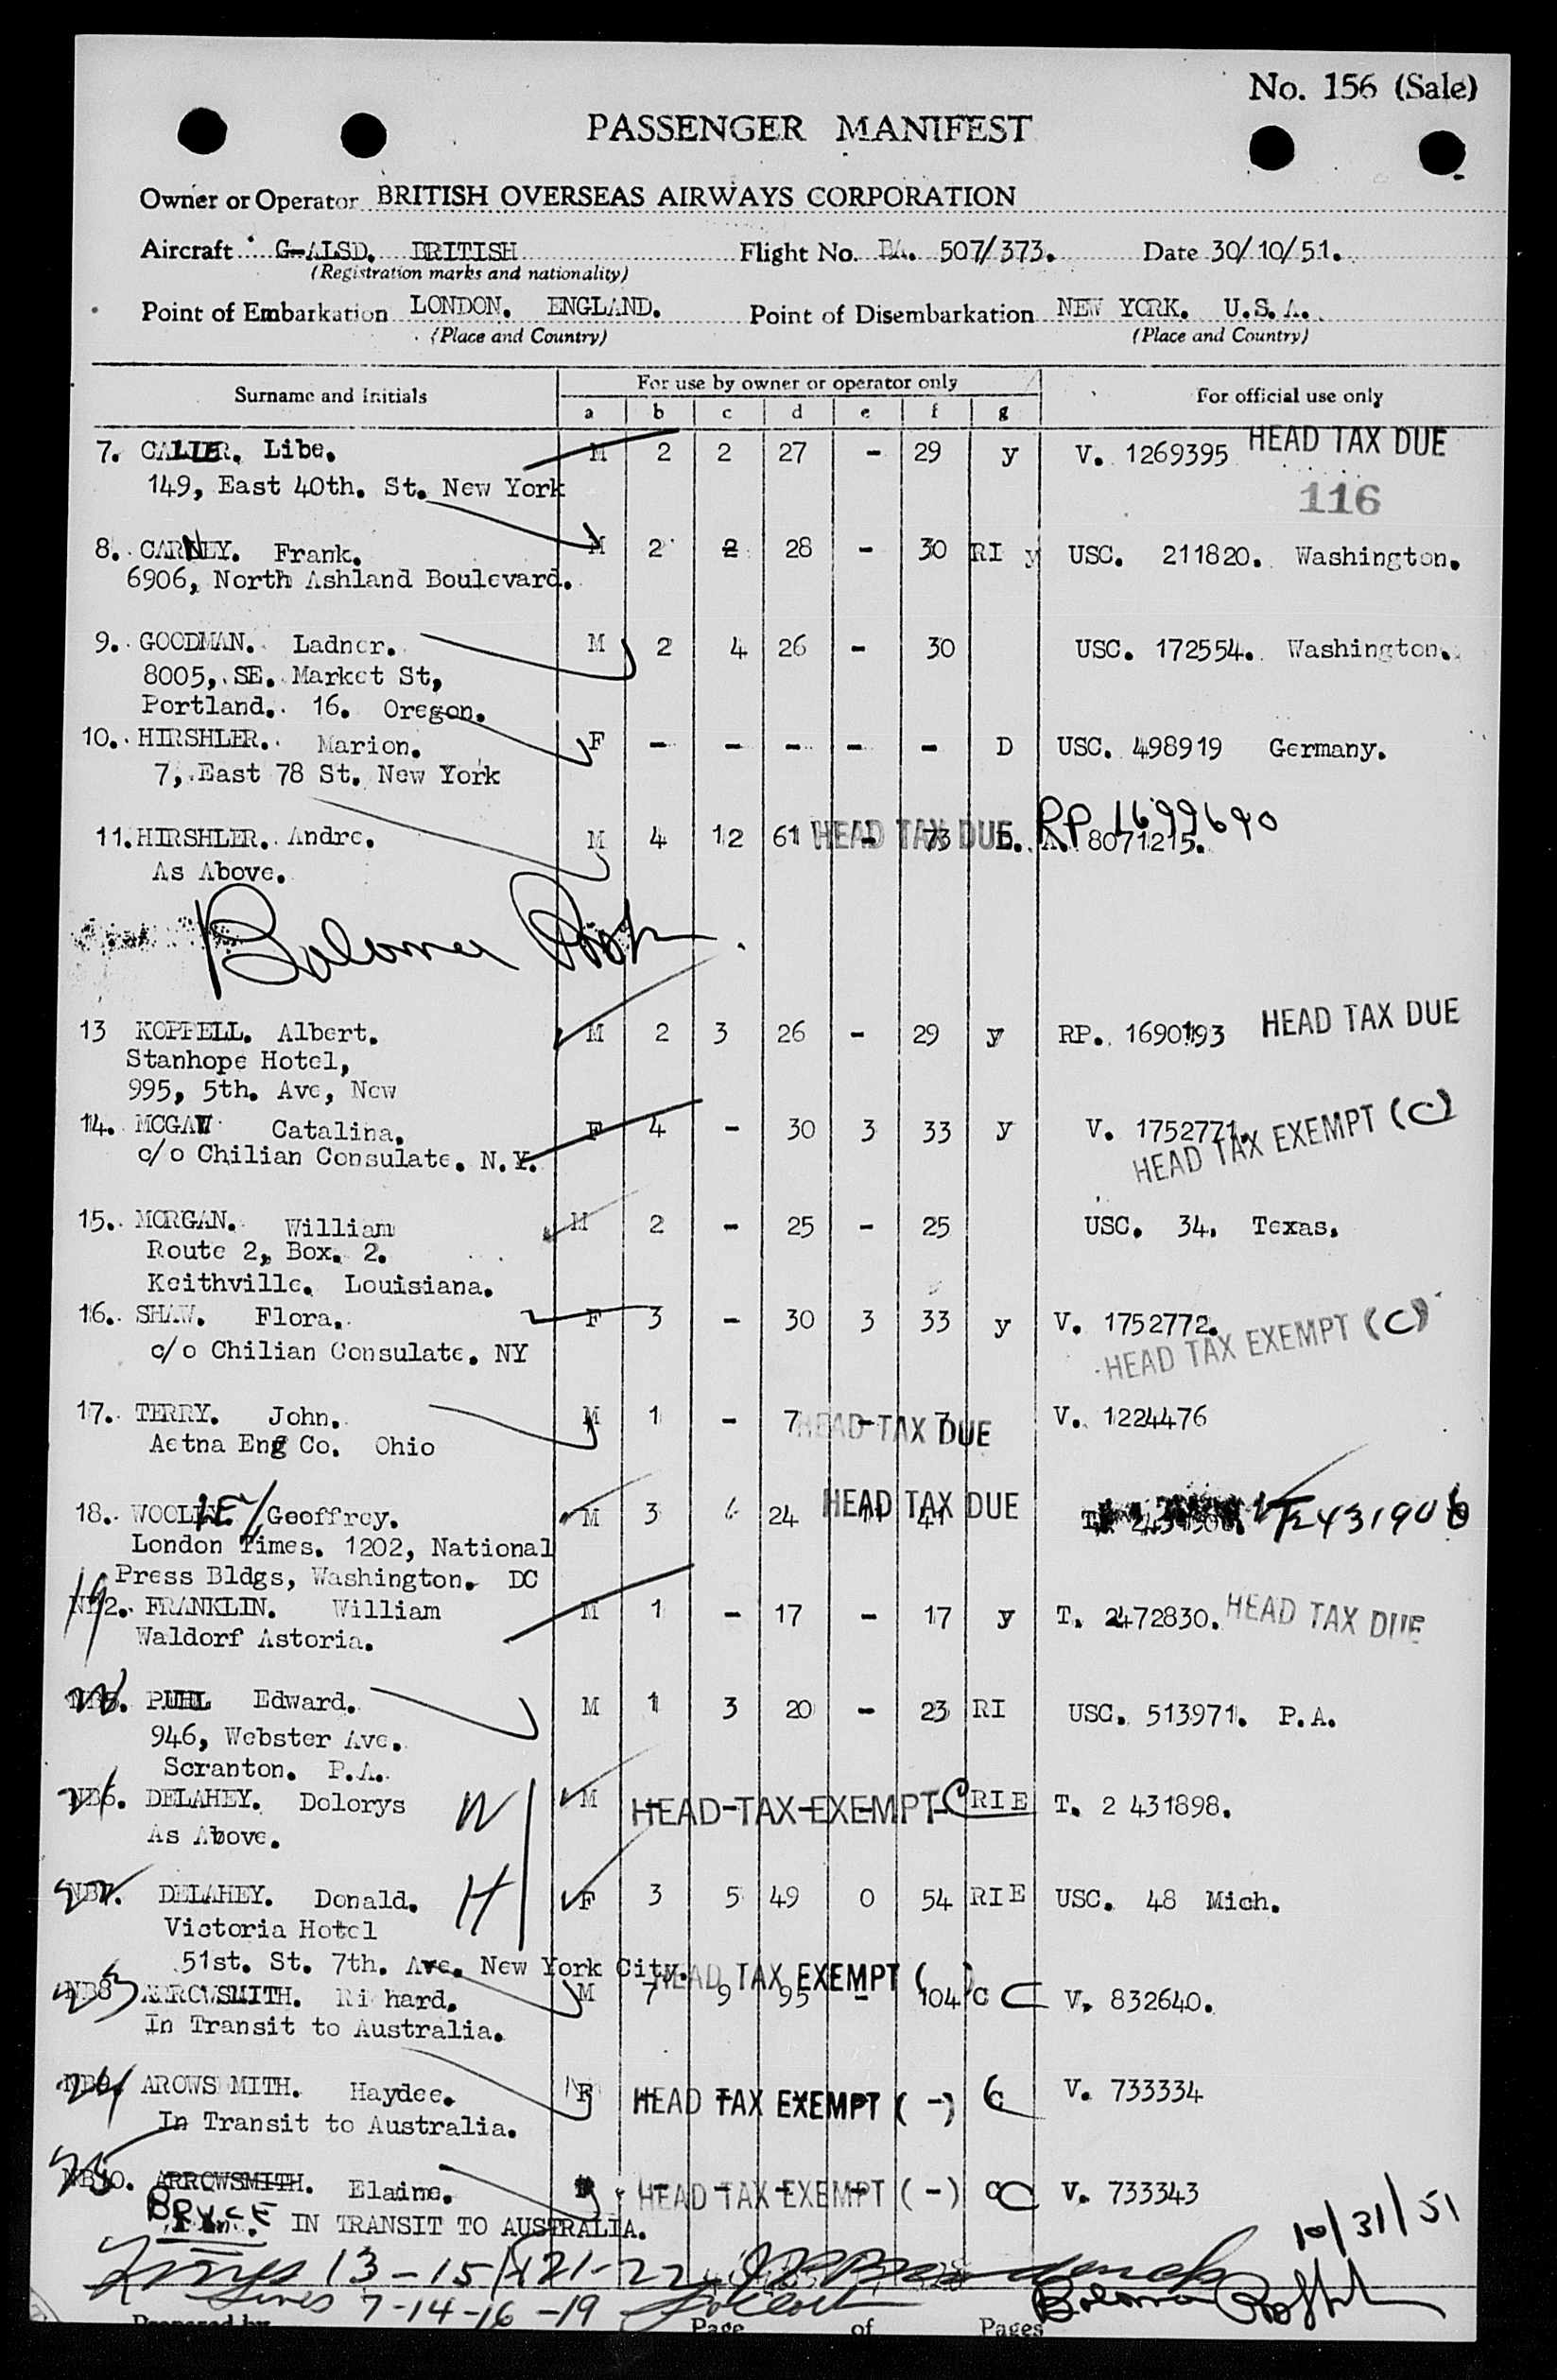 No. 156 (Sale)
PASSENGER MANIFEST
Owner or Operator BRITISH OVERSEAS AIRWAYS CORPORATION
Aircraft G-ALSD. BRITISH Flight No. BA. 507/373. Date 30/10/51.
(Registration marks and nationality)
Point of Embarkation LONDON. ENGLAND. Point of Disembarkation NEW YORK. U.S.A.
(Place and Country) (Place and Country)
Surname and Initials For use by owner or operator only For official use only
a b c d e f g
7. Libe. M 2 2 27 - 29 y V. 1269395 HEAD TAX DUE
149, East 40th. St. New York 116
8. CARNEY. Frank. M 2 2 28 - 30 RI y USC. 211820. Washington.
6906, North Ashland Boulevard.
9. GOODMAN. Ladner. M 2 4 26 - 30 USC. 172554. Washington.
8005, SE. Market St,
Portland. 16. Oregon.
10. HIRSHLER. Marion. F - - - - - D USC. 498919 Germany.
7, East 78 St. New York
RP 1699690
11. HIRSHLER. Andre. M 4 12 61 - 73 D. A. 8071215.
HEAD TAX DUE
As Above.
13 KOPPELL. Albert. M 2 3 26 - 29 y RP. 1690193 HEAD TAX DUE
Stanhope Hotel,
995, 5th. Ave, New
14. MCGAW Catalina. F 4 - 30 3 33 y V. 1752771. HEAD TAX EXEMPT (C)
c/o Chilian Consulate. N.Y.
15. MORGAN. William M 2 - 25 - 25 USC. 34. Texas.
Route 2, Box. 2.
Keithville. Louisiana.
16. SHAW. Flora. F 3 - 30 3 33 y V. 1752772.
c/o Chilian Consulate. NY HEAD TAX EXEMPT (C)
17. TERRY. John. M 1 - 7 - 7 V. 1224476
HEAD TAX DUE
Aetna Eng Co. Ohio
18. Geoffrey. M 3 24 41 HEAD TAX DUE T2431906
London Times. 1202, National
Press Bldgs, Washington. DC
19 FRANKLIN. William M 1 - 17 - 17 y T. 2472830. HEAD TAX DUE
Waldorf Astoria.
PUHL Edward. M 1 3 20 - 23 RI USC. 513971. P.A.
946, Webster Ave.
Scranton. P.A.
21 NB6. DELAHEY. Dolorys W M HEAD TAX EXEMPT C RIE T. 2 431898.
As Above.
22 NB7. DELAHEY. Donald. H F 3 5 49 0 54 RIE USC. 48 Mich.
Victoria Hotel
51st. St. 7th. Ave. New York City. HEAD TAX EXEMPT ( )
23 NB8 ARROWSMITH. Ri hard. M 7 9 95 - 104 C C V. 832640.
In Transit to Australia.
24 NB9. AROWS MITH. Haydee. F HEAD TAX EXEMPT (-) C V. 733334
In Transit to Australia.
25 NB10. ARROWSMITH. Elaine. HEAD TAX EXEMPT (-) C V. 733343
BRYCE IN TRANSIT TO AUSTRALIA.
10/31/51
13-15 21-22
Lines 7-14-16-19
Prepared by Page of Pages